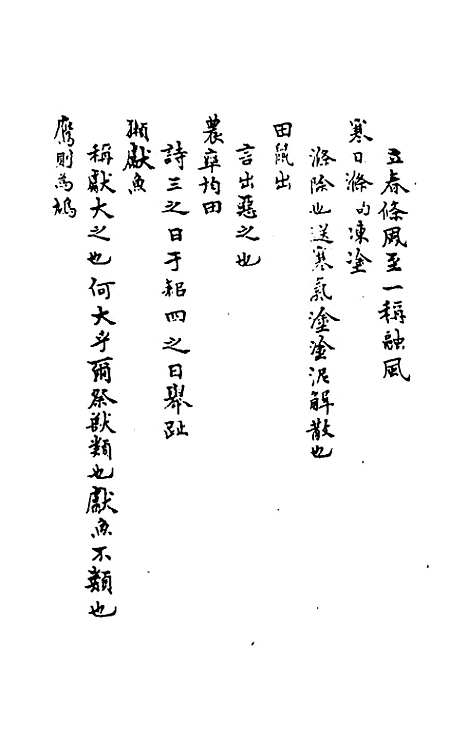 立春條風至一稱融風
寒日滌句凍塗
滌除也送寒氣塗塗泥解散也
田鼠出
言出惡之也
農率均田
詩三之日于耜四之日舉趾
獺獻魚
稱獻大之也何大乎爾祭獸類也獻魚不類也
鷹則為鳩